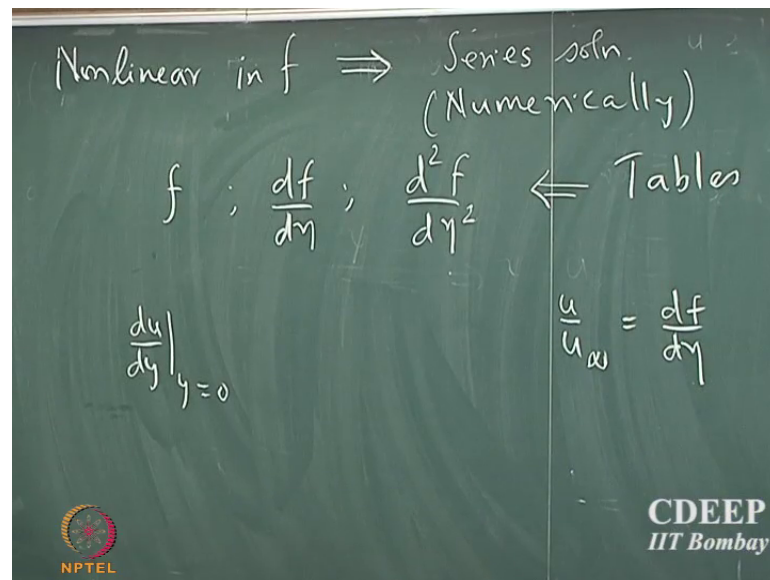 Nonlinear in f ⇒ Series soln.
(Numerically)
f ; df/dη ; d²f/dη² ⇐ Tables
du/dy|y=0
u/u∞ = df/dη
CDEEP
IIT Bombay
NPTEL